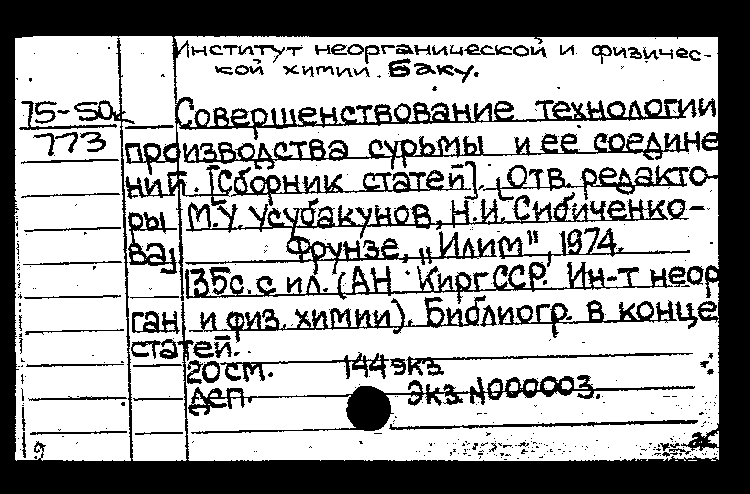 Институт неорганической и физичес-
кой химии. Баку.
75-50к Совершенствование технологии
773 производства сурьмы и ее соедине
ний. [Сборник статей]. (Отв. редакто-
ры М.У. Усубакунов, Н.И. Сибиченко-
ва) Фрунзе, „Илим", 1974.
135с. с ил. (АН КиргССР. Ин-т неор
ган и физ. химии). Библиогр. в конце
статей.
20 ст. 144 экз
деп. Экз. №000003.
9